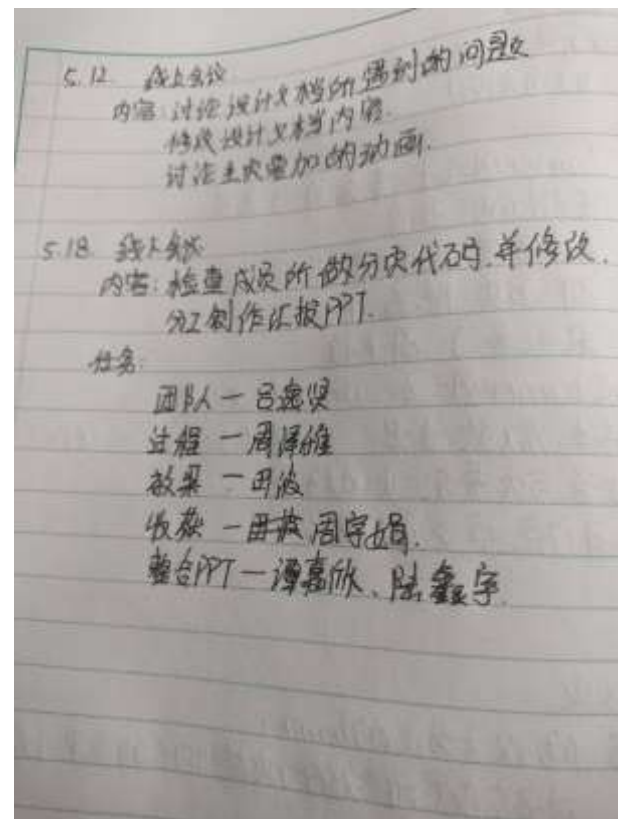 5.12. 线上会议
内容:讨论设计文档所遇到的问题
修改设计文档内容.
讨论主次叠加的动画.
5.18. 线上会议
内容:检查成员所做分块代码.并修改.
分工制作汇报PPT.
任务:
团队—吕逸贤
过程—周泽维
效果—田波
收获—周宇娟.
整合PPT—谭嘉欣、陆鑫宇.